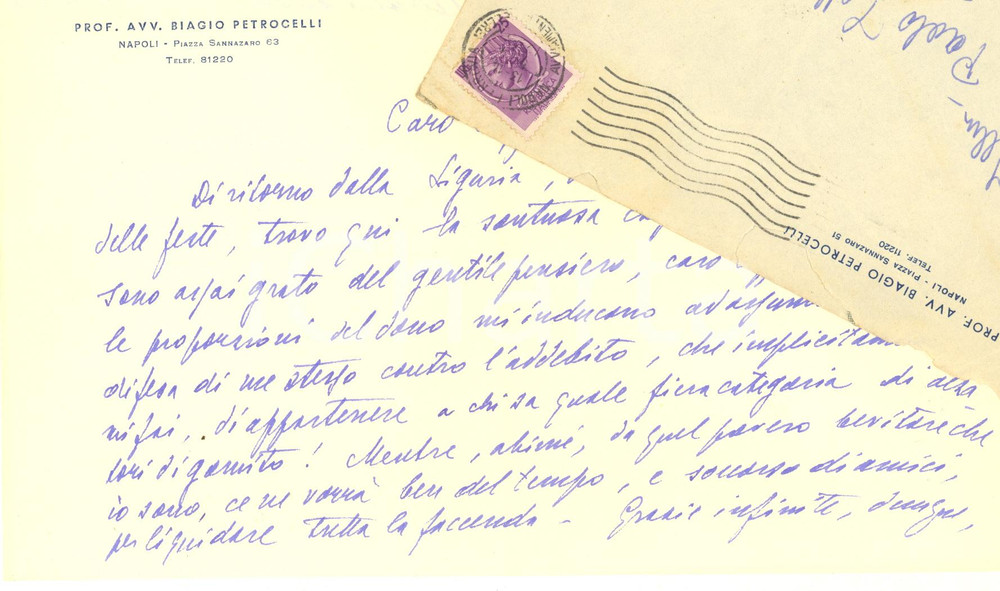 PROF. AVV. BIAGIO PETROCELLI
NAPOLI - PIAZZA SANNAZARO 63
TELEF. 81220
Caro
Di ritorno dalla Liguria,
delle feste, trovo qui la sontuosa
sono assai grato del gentile pensiero, caro
le proporzioni del dono mi inducono ad assum
difesa di me stesso contro l'addebito, che implicitam
mi fai, di appartenere a chi sa quale fiera categoria di alza
tori di gomito! Mentre, ahimè, da quel povero bevitore che
io sono, ce ne vorrà ben del tempo, e soccorso di amici,
per liquidare tutta la faccenda - Grazie infinite, dunque,
Paolo
PROF. AVV. BIAGIO PETROCELLI
NAPOLI - PIAZZA SANNAZARO 51
TELEF. 11220